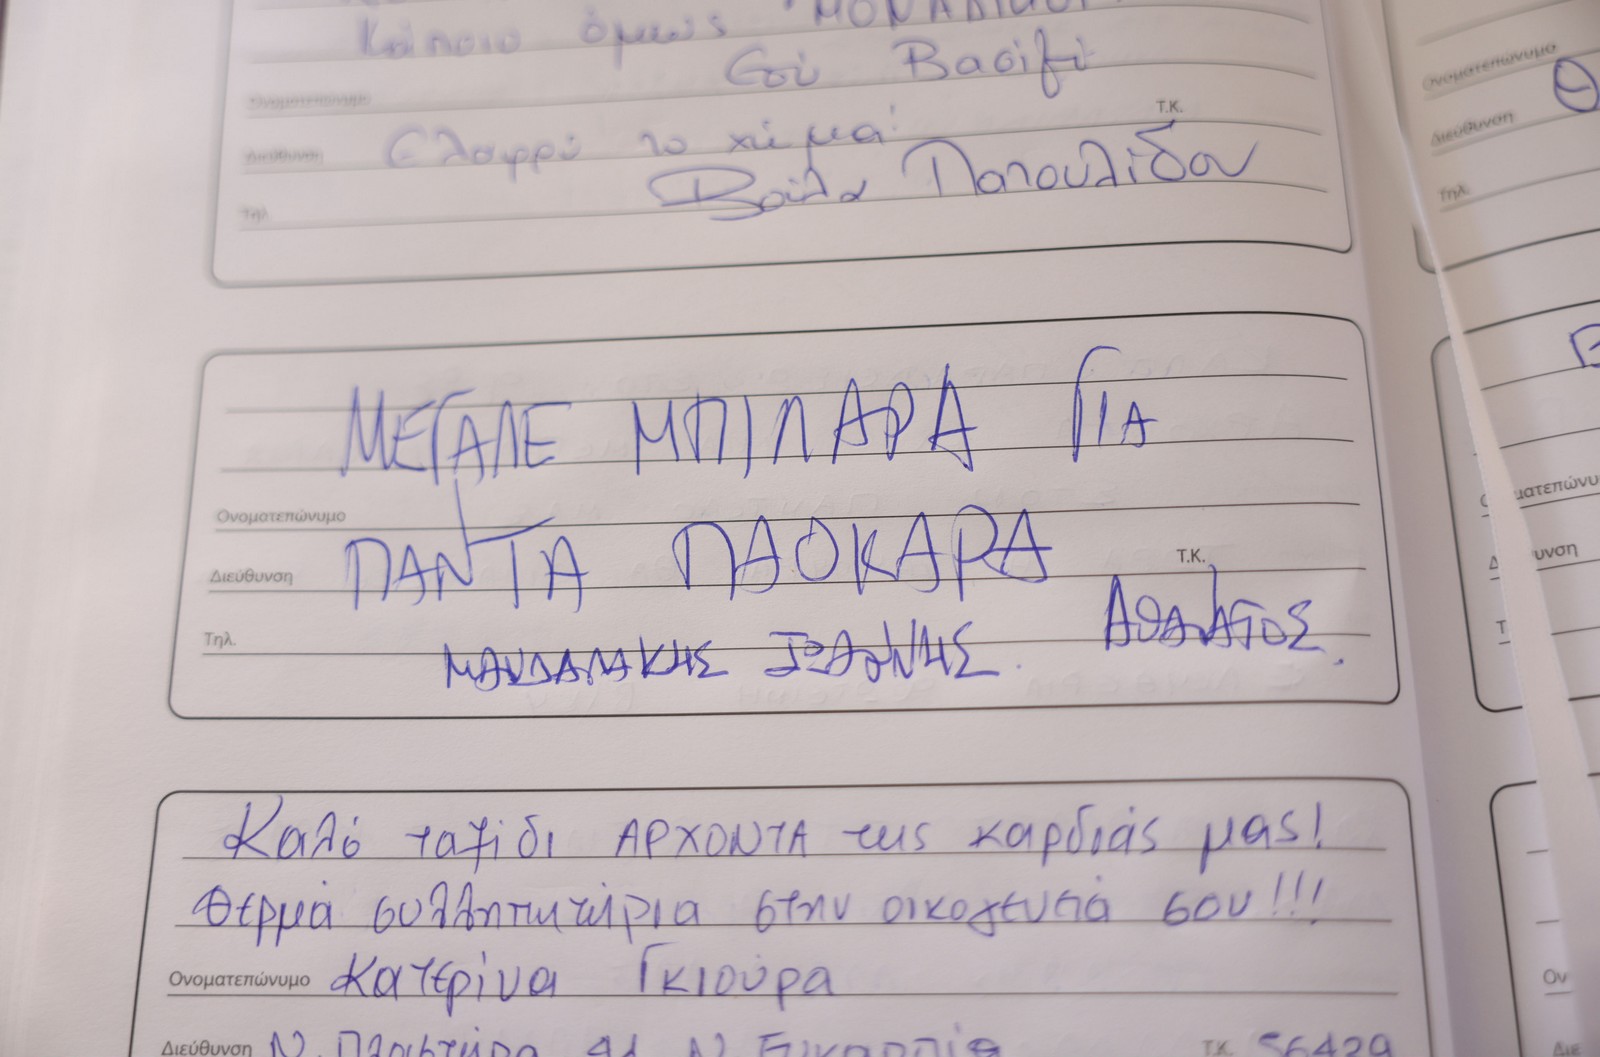 Κάποιο όμως ΜΟΝΑΔΙΚΟΙ
Εσύ Βασίζη
Ονοματεπώνυμο
Τ.Κ.
Διεύθυνση Ελαφρύ το χώμα!
Βούλα Πατουλίδου
Τηλ.
ΜΕΓΑΛΕ ΜΠΙΛΑΡΑ ΓΙΑ
Ονοματεπώνυμο
Διεύθυνση ΠΑΝΤΑ ΠΑΟΚΑΡΑ Τ.Κ.
ΑΘΑΝΑΤΟΣ.
Τηλ. ΜΑΝΔΑΛΑΚΗΣ ΙΩΑΝΝΗΣ.
Καλό ταξίδι ΑΡΧΟΝΤΑ της καρδιάς μας!
Θερμά συλλητητήρια στην οικογένειά σου!!!
Ονοματεπώνυμο Κατερίνα Γκιούρα
Διεύθυνση Ν. Πλαστήρα 91 Ν. Ευκαρπία Τ.Κ. 56429
Ονοματεπώνυμο
Διεύθυνση
Τηλ.